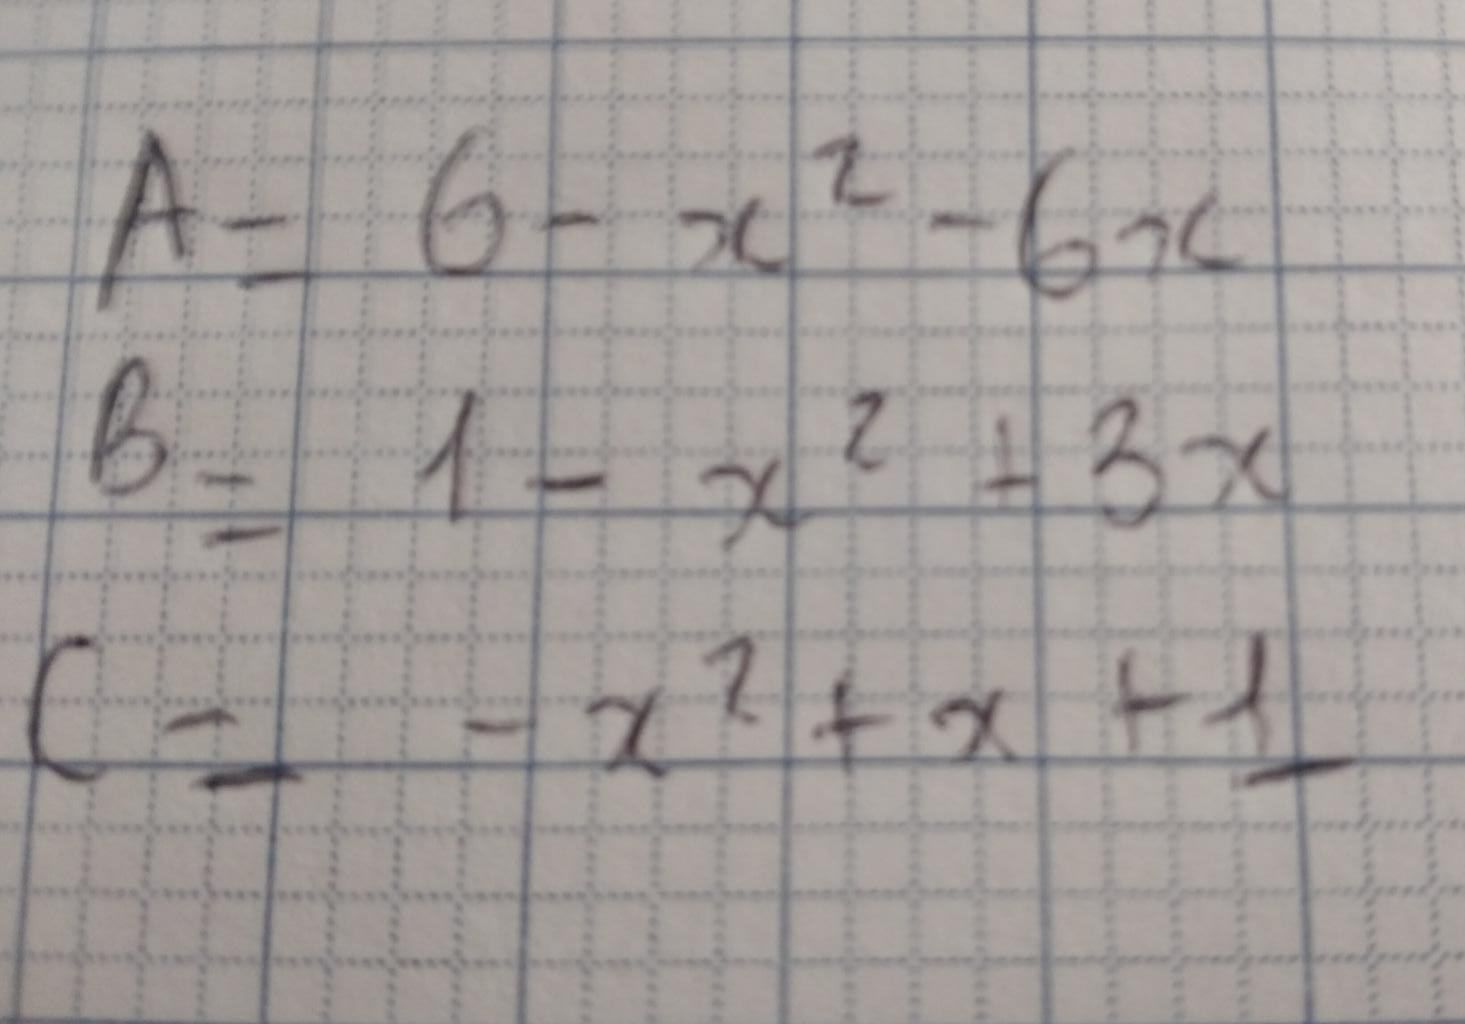 A = 6 - x² - 6x
B = 1 - x² + 3x
C = - x² + x + 1